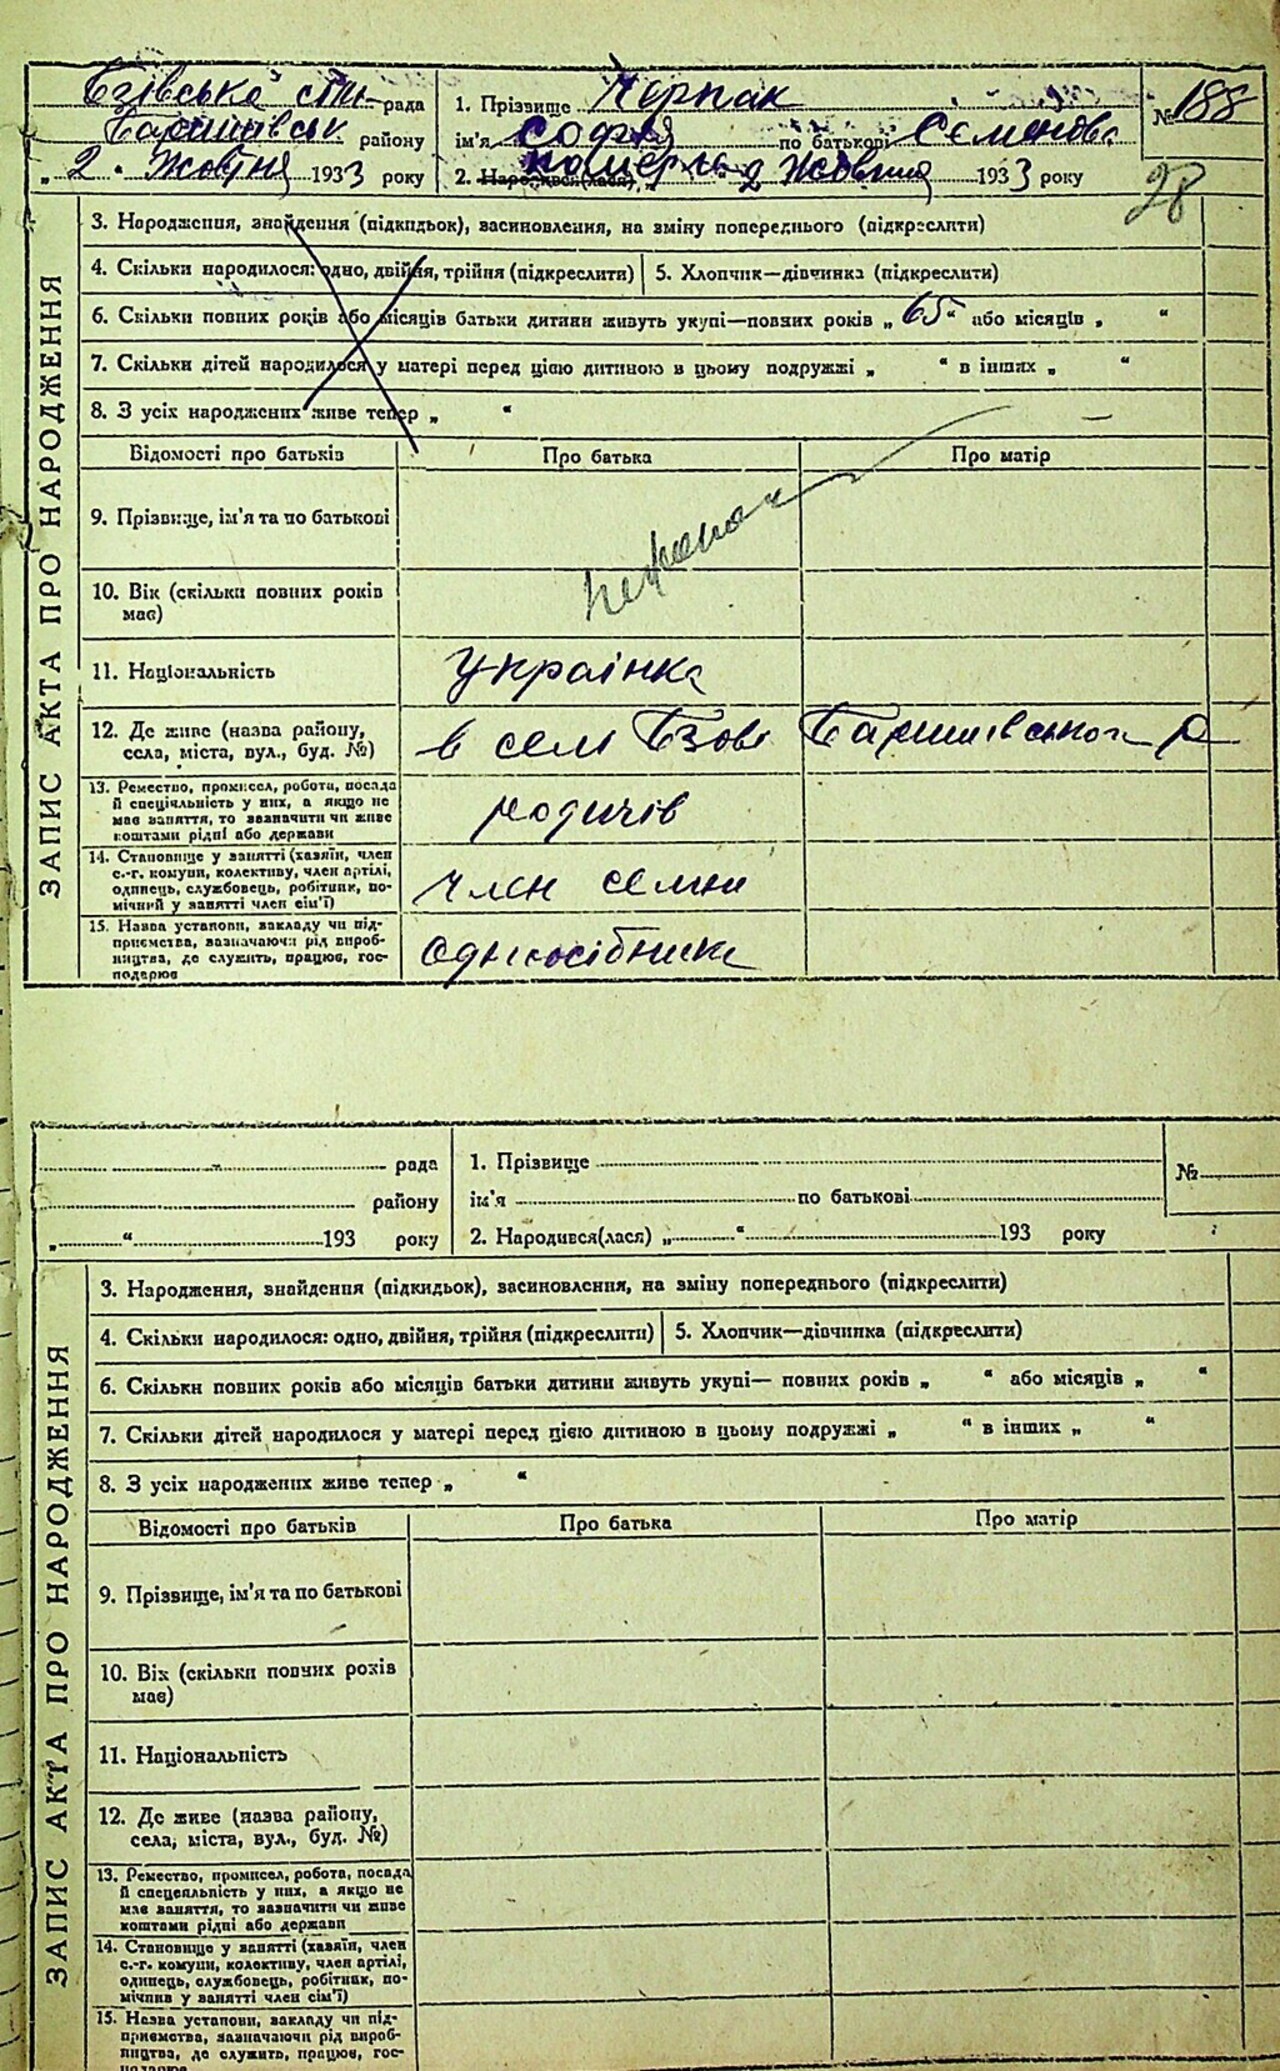 Бзівська сіль рада
Баришівськ району
„ 2 " Жовтня 1933 року
1. Прізвище Черпак
ім'я Софія по батькові Семенова
2. Народився(лася) померла 2 Жовтня 1933 року
№ 188
28
ЗАПИС АКТА ПРО НАРОДЖЕННЯ
3. Народження, знайдення (підкидьок), засиновлення, на зміну попереднього (підкреслити)
4. Скільки народилося: одно, двійня, трійня (підкреслити) 5. Хлопчик—дівчинка (підкреслити)
6. Скільки повних років або місяців батьки дитини живуть укупі—повних років „ 65 “ або місяців „ “
7. Скільки дітей народилося у матері перед цією дитиною в цьому подружжі „ “ в інших „ “
8. З усіх народжених живе тепер „ “
Відомості про батьків Про батька Про матір
9. Прізвище, ім'я та по батькові
10. Вік (скільки повних років
має)
11. Національність українка
12. Де живе (назва району,
села, міста, вул., буд. №) в селі Бзов Баришівського р
13. Ремество, промисел, робота, посада
й спеціяльність у них, а якщо не
має заняття, то зазначити чи живе
коштами рідні або держави
родичів
14. Становище у занятті (хазяїн, член
с.-г. комуни, колективу, член артілі,
одинець, службовець, робітник, по-
мічний у занятті член сім'ї)
член семи
15. Назва установи, закладу чи під-
приємства, зазначаючи рід вироб-
ництва, де служить, працює, гос-
подарює
одноосібник
рада
району
„ “ 193 року
1. Прізвище
ім'я по батькові
2. Народився(лася) „ “ 193 року
№
ЗАПИС АКТА ПРО НАРОДЖЕННЯ
3. Народження, знайдення (підкидьок), засиновлення, на зміну попереднього (підкреслити)
4. Скільки народилося: одно, двійня, трійня (підкреслити) 5. Хлопчик—дівчинка (підкреслити)
6. Скільки повних років або місяців батьки дитини живуть укупі— повних років „ “ або місяців „ “
7. Скільки дітей народилося у матері перед цією дитиною в цьому подружжі „ “ в інших „ “
8. З усіх народжених живе тепер „ “
Відомості про батьків Про батька Про матір
9. Прізвище, ім'я та по батькові
10. Вік (скільки повних років
має)
11. Національність
12. Де живе (назва району,
села, міста, вул., буд. №)
13. Ремество, промисел, робота, посада
й спецеяльність у них, а якщо не
має заняття, то зазначити чи живе
коштами рідні або держави
14. Становище у занятті (хазяїн, член
с.-г. комуни, колективу, член артілі,
одинець, службовець, робітник, по-
мічний у занятті член сім'ї)
15. Назва установи, закладу чи під-
приємства, зазначаючи рід вироб-
ництва, де служить, працює, гос-
подарює